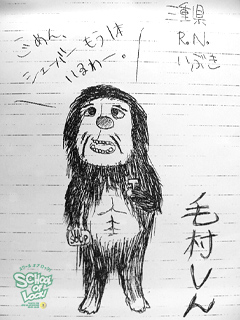 ごめん、
シェーバーもう1本
いるわー。
三重県
R.N.
いぶき
毛村しん
SCHOOL
OF
LOCK!